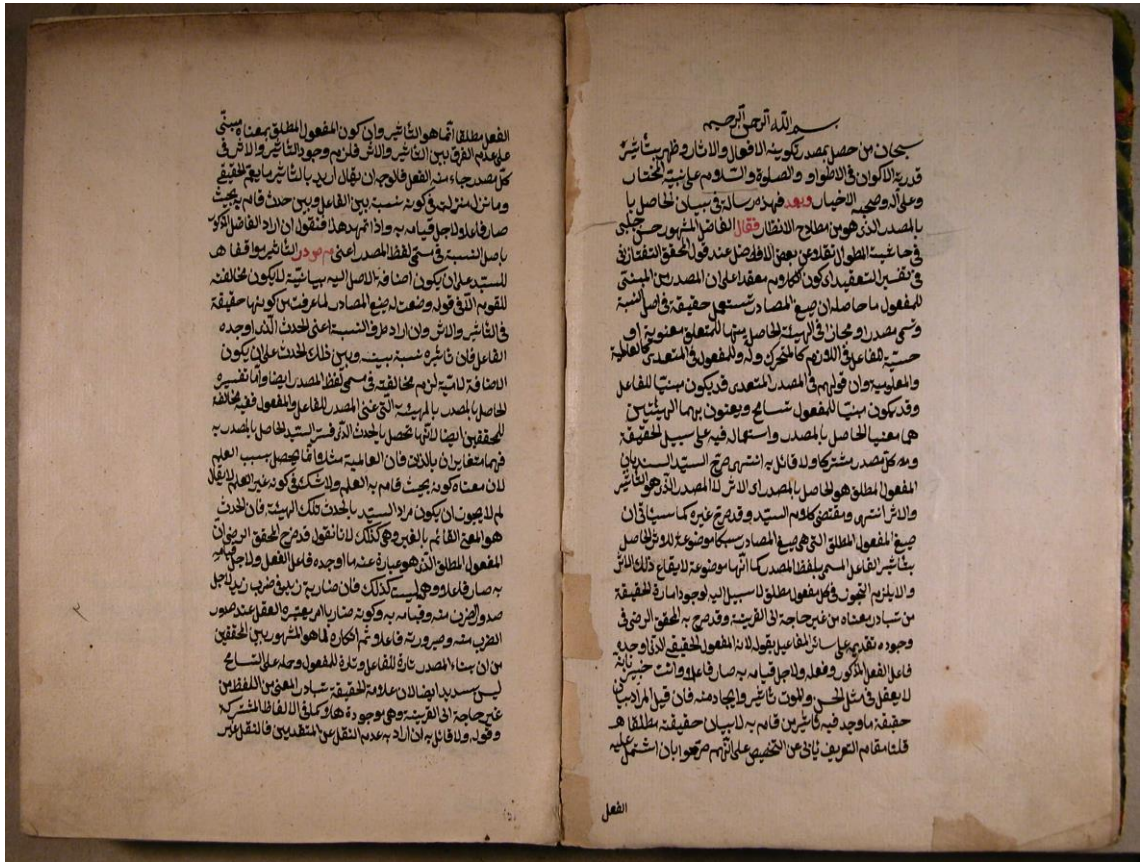 بسم الله الرحمن الرحيم
سبحان من حصل بمصدر تكوينه الافعال والاثار وظهر بتأثير
قدرته الاكوان في الاطوار والصلوة والسلام على نبيه المختار
وعلى آله وصحبه الاخيار وبعد فهذه رسالة في بيان الحاصل با
بالمصدر الذي هو من مطارح الانظار فقال الفاضل المشهور حسن چلبى
في حاشية المطول نقلا عن بعض الافاضل عند قول المحقق التفتازاني
في تفسير التعقيد اى كون الكلام معقدا على ان المصدر من المبنى
للمفعول ما حاصله ان صيغ المصادر تستعمل حقيقة في اصل النسبة
وتسمى مصدرا ومجازا في الهيئة الحاصل منها للمتعلق معنوية او
حسية للفاعل في اللازم كالمتحركية وله وللمفعول في المتعدى كالعالمية
والمعلومية وان قولهم في المصدر المتعدى قد يكون مبنيا للفاعل
وقد يكون مبنيا للمفعول تسامح ويعنون بهما الهيئتين
هما معنيا الحاصل بالمصدر واستعماله فيه على سبيل الحقيقة
والا كل مصدر مشتركا ولا قائل به انتهى صرح السيد السند بان
المفعول المطلق هو الحاصل بالمصدر اى الاثر لا المصدر الذي هو التأثير
والاثر انتهى ومقتضى كلام السيد وقد صرح غيره كما سيأتى ان
صيغ المفعول المطلق التى هى صيغ المصادر موضوعة للاثر الحاصل
بتأثير الفاعل المسمى بلفظ المصدر كما انها موضوعة لايقاع ذلك الاثر
والا يلزم التجوز في كل مفعول مطلق لا سبيل اليه لوجود امارة الحقيقة
من تبادر معناه من غير حاجة الى القرينة وقد صرح به المحقق الرضى في
وجوده تقديمه على سائر المفاعيل بقوله لانه المفعول الحقيقى الذي اوجده
فاعل الفعل المذكور وفعله ولاجل قيامه به صار فاعلا وانت خبير بانه
لا يعقل في مثل الحسن والموت تأثير وايجاد منه فان قيل المراد بيان
حقيقة ما وجد فيه تأثير من قام به لا بيان حقيقته مطلقا هـ
قلنا مقام التعريف يأبى عن التخصيص على انهم صرحوا بان اشتمل عليه
الفعل
الفعل مطلقا انما هو التأثير وان كون المفعول المطلق بمعناه مبنى
على عدم الفرق بين التأثير والاثر فلزم وجود التأثير والاثر في
كل مصدر جاء منه الفعل فالوجه ان يقال اريد بالتأثير ما يعم الحقيقى
وما نزل منزلته في كونه نسبة بين الفاعل وبين حدث قام به بحيث
صار فاعلا ولاجل قيامه به واذا تمهد هذا فنقول ان اراد الفاضل المذكور
باصل النسبة في مسمى لفظ المصدر اعنى التأثير موافقا هـ
للسيد على ان يكون اضافة الاصل اليه بيانية لا يكون مخالفته
للقوم الا في قوله وضعت له صيغ المصادر لما عرفت من كونها حقيقة
في التأثير والاثر وان اراد طرف النسبة اعنى الحدث الذي اوجده
الفاعل فان تأثيره نسبة بينه وبين ذلك الحدث على ان يكون
الاضافة لامية لزم مخالفته في مسمى لفظ المصدر ايضا واما تفسيره
الحاصل بالمصدر بالهيئة التى عنى المصدر للفاعل والمفعول ففيه مخالفة
للمحققين ايضا لانها تحصل بالحدث الذي فسر السيد الحاصل بالمصدر به
فهما متغايران بالذات فان العالمية مثلا انما يحصل بسبب العلم
لان معناه كونه بحيث قام به العلم ولا شك في كونه غير العلم لا يقال
لم لا يجوز ان يكون مراد السيد بالحدث تلك الهيئة فان الحدث
هو المعنى القائم بالغير وهى كذلك لانا نقول قد صرح المحقق الرضى ان
المفعول المطلق الذي هو عبارة عنه ما اوجده فاعل الفعل ولاجل قيامه
به صار فاعلا وهى ليست كذلك فان ضاربية زيد في ضرب زيد لاجل
صدور الضرب منه وقيامه به وكونه ضاربا امر يعتبره العقل عند صدور
الضرب منه وصيرورته فاعلا ثم انكاره لما هو المشهور بين المحققين
من ان بناء المصدر تارة للفاعل وتارة للمفعول وحمله على التسامح
ليس بسديد ايضا لان علامة الحقيقة تبادر المعنى من اللفظ من
غير حاجة الى القرينة وهى موجودة هنا وكما في الالفاظ المشتركة
وقوله ولا قائل به ان اراد به عدم النقل عن المتقدمين فالنقل غير